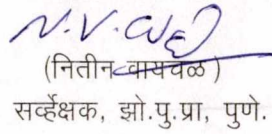 N.V.
(नितीन वायचळ)
सर्व्हेक्षक, झो.पु.प्रा, पुणे.